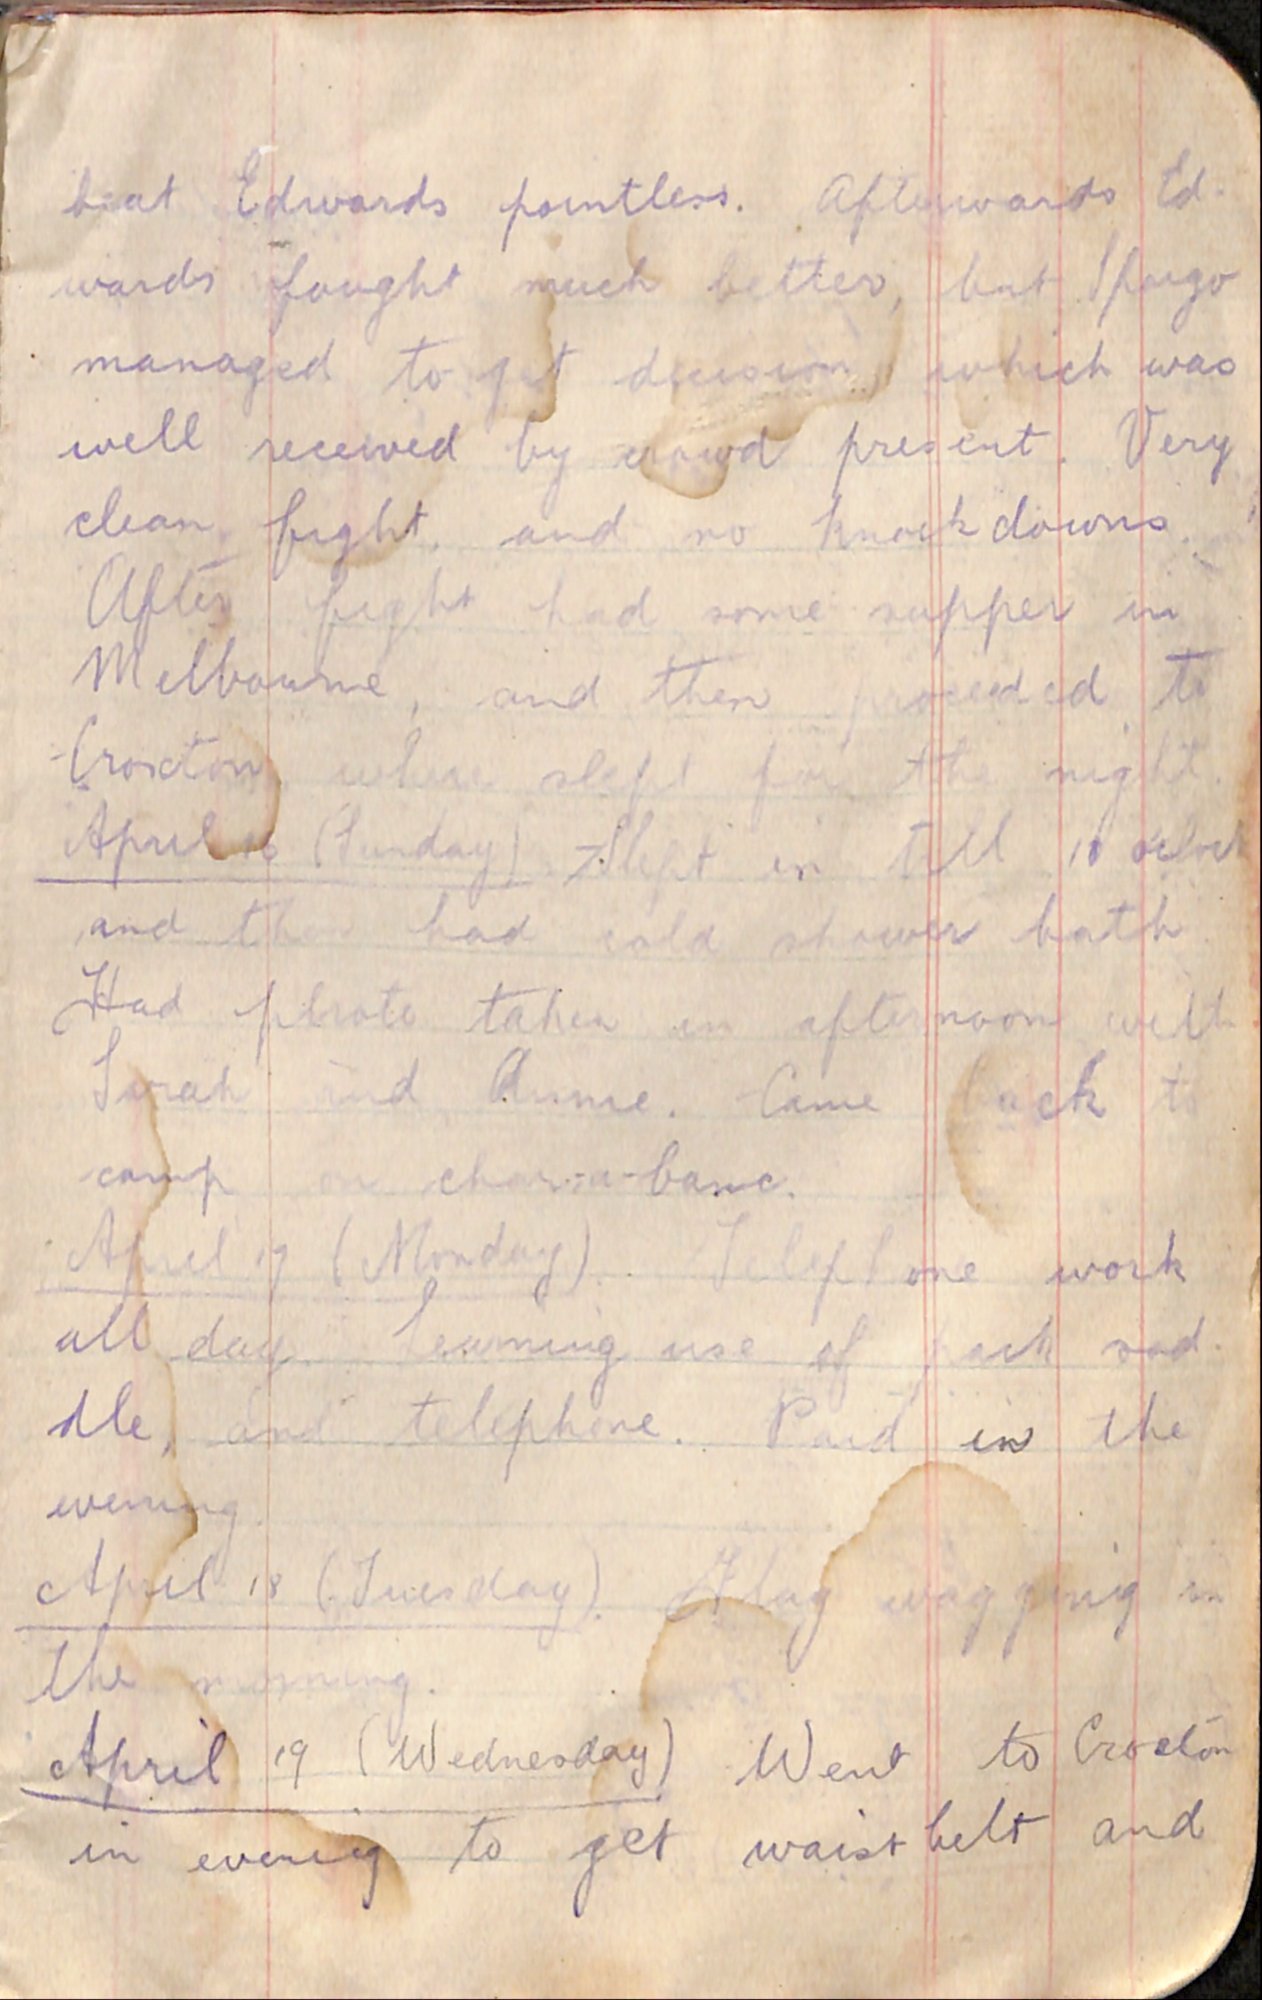 beat Edwards pointless. Afterwards Ed-
wards fought much better, but Spargo
managed to get decision, which was
well received by crowd present. Very
clean fight, and no knockdowns.
After fight had some supper in
Melbourne, and then proceeded to
Croxton where slept for the night.
April 16 (Sunday) Slept in till 10 oclock
and then had cold shower bath.
Had photo taken in afternoon with
Sarah and Annie. Came back to
camp on char-a-banc.
April 17 (Monday). Telephone work
all day. Learning use of pack sad-
dle, and telephone. Paid in the
evening.
April 18 (Tuesday). Flag wagging in
the morning.
April 19 (Wednesday) Went to Croxton
in evenig to get waist belt and